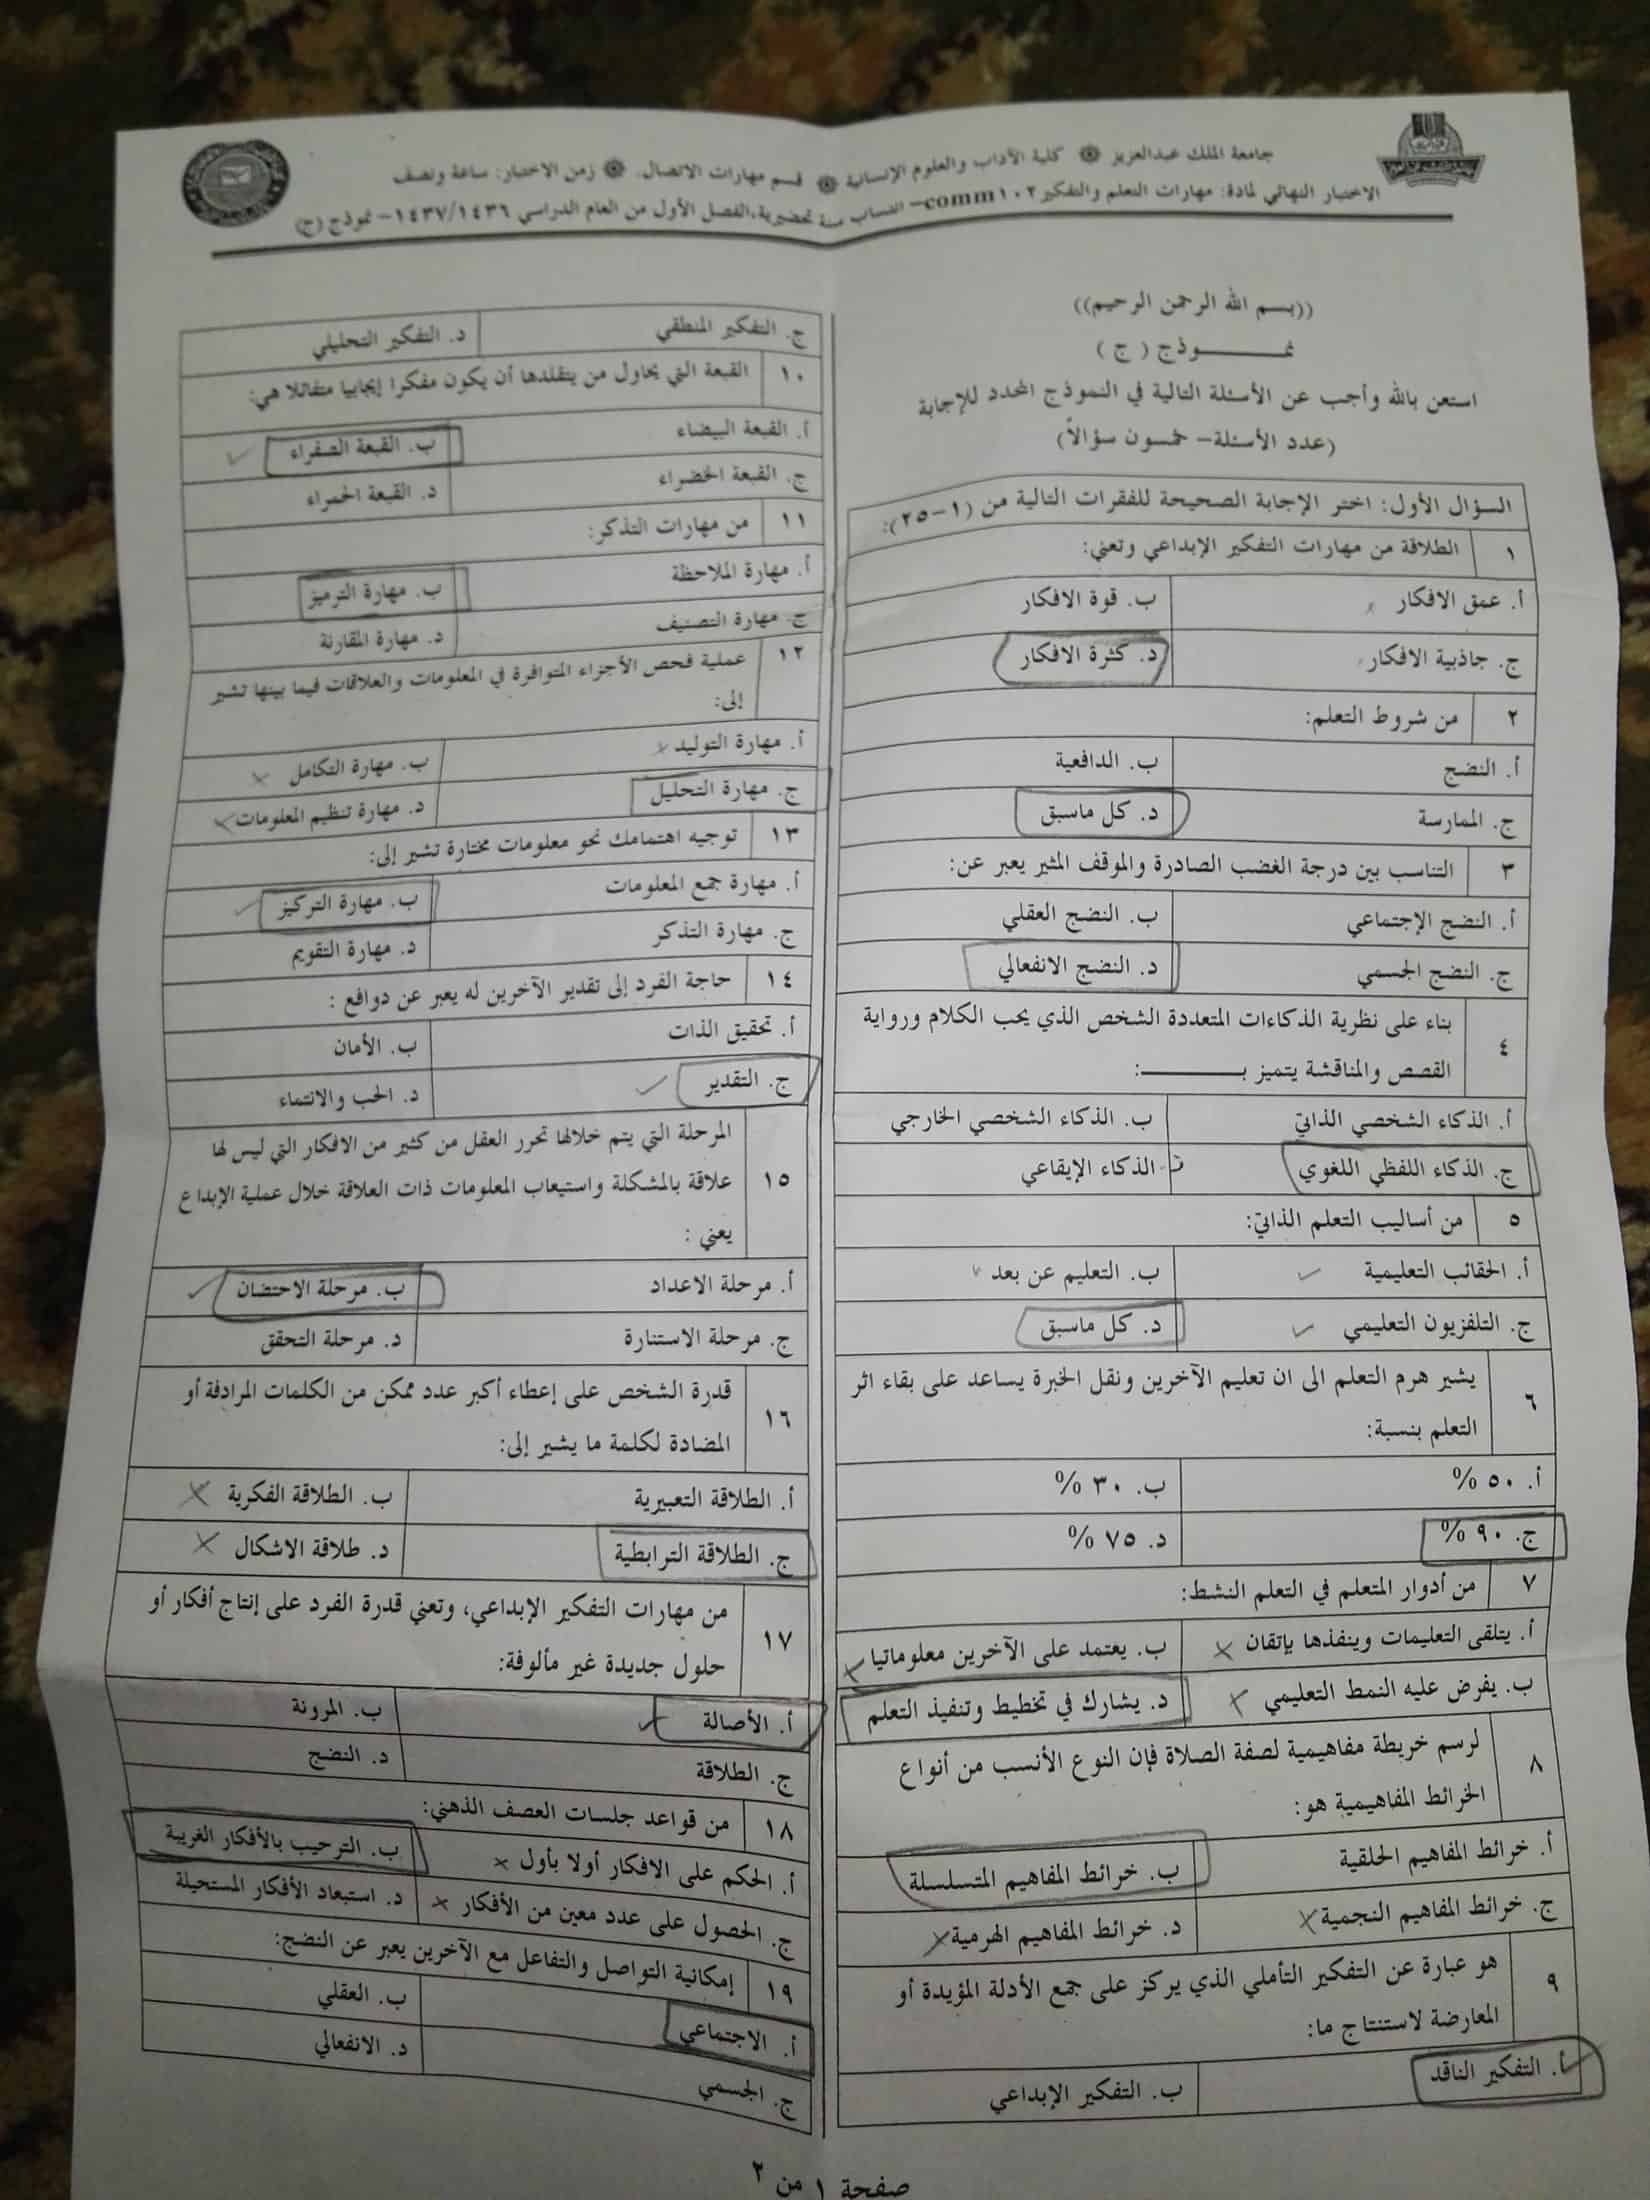 جامعة الملك عبدالعزيز ۞ كلية الآداب والعلوم الإنسانية ۞ قسم مهارات الاتصال. ۞ زمن الاختبار: ساعة ونصف
الاختبار النهائي لمادة: مهارات التعلم والتفكير comm١٠٢– انتساب سنة تحضيرية،الفصل الأول من العام الدراسي ١٤٣٧/١٤٣٦ – نموذج (ج)
((بسم الله الرحمن الرحيم))
نمـــــــــوذج ( ج )
استعن بالله وأجب عن الأسئلة التالية في النموذج المحدد للإجابة
(عدد الأسئلة– خمسون سؤالاً)
السؤال الأول: اختر الإجابة الصحيحة للفقرات التالية من (١–٢٥):
١ الطلاقة من مهارات التفكير الإبداعي وتعني:
أ. عمق الافكار ب. قوة الافكار
ج. جاذبية الافكار د. كثرة الافكار
٢ من شروط التعلم:
أ. النضج ب. الدافعية
ج. الممارسة د. كل ماسبق
٣ التناسب بين درجة الغضب الصادرة والموقف المثير يعبر عن:
أ. النضج الإجتماعي ب. النضج العقلي
ج. النضج الجسمي د. النضج الانفعالي
٤ بناء على نظرية الذكاءات المتعددة الشخص الذي يحب الكلام ورواية
القصص والمناقشة يتميز بـ ـــــــــــــ:
أ. الذكاء الشخصي الذاتي ب. الذكاء الشخصي الخارجي
ج. الذكاء اللفظي اللغوي د. الذكاء الإيقاعي
٥ من أساليب التعلم الذاتي:
أ. الحقائب التعليمية ب. التعليم عن بعد
ج. التلفزيون التعليمي د. كل ماسبق
٦ يشير هرم التعلم الى ان تعليم الآخرين ونقل الخبرة يساعد على بقاء اثر
التعلم بنسبة:
أ. ٥٠ % ب. ٣٠ %
ج. ٩٠ % د. ٧٥ %
٧ من أدوار المتعلم في التعلم النشط:
أ. يتلقى التعليمات وينفذها بإتقان ب. يعتمد على الآخرين معلوماتيا
ب. يفرض عليه النمط التعليمي د. يشارك في تخطيط وتنفيذ التعلم
٨ لرسم خريطة مفاهيمية لصفة الصلاة فإن النوع الأنسب من أنواع
الخرائط المفاهيمية هو:
أ. خرائط المفاهيم الحلقية ب. خرائط المفاهيم المتسلسلة
ج. خرائط المفاهيم النجمية د. خرائط المفاهيم الهرمية
٩ هو عبارة عن التفكير التأملي الذي يركز على جمع الأدلة المؤيدة أو
المعارضة لاستنتاج ما:
أ. التفكير الناقد ب. التفكير الإبداعي
ج. التفكير المنطقي د. التفكير التحليلي
١٠ القبعة التي يحاول من يتقلدها أن يكون مفكرا إيجابيا متفائلا هي:
أ. القبعة البيضاء ب. القبعة الصفراء
ج. القبعة الخضراء د. القبعة الحمراء
١١ من مهارات التذكر:
أ. مهارة الملاحظة ب. مهارة الترميز
ج. مهارة التصنيف د. مهارة المقارنة
١٢ عملية فحص الأجزاء المتوافرة في المعلومات والعلاقات فيما بينها تشير
إلى:
أ. مهارة التوليد ب. مهارة التكامل
ج. مهارة التحليل د. مهارة تنظيم المعلومات
١٣ توجيه اهتمامك نحو معلومات مختارة تشير إلى:
أ. مهارة جمع المعلومات ب. مهارة التركيز
ج. مهارة التذكر د. مهارة التقويم
١٤ حاجة الفرد إلى تقدير الآخرين له يعبر عن دوافع :
أ. تحقيق الذات ب. الأمان
ج. التقدير د. الحب والانتماء
١٥ المرحلة التي يتم خلالها تحرر العقل من كثير من الافكار التي ليس لها
علاقة بالمشكلة واستيعاب المعلومات ذات العلاقة خلال عملية الإبداع
يعني :
أ. مرحلة الاعداد ب. مرحلة الاحتضان
ج. مرحلة الاستنارة د. مرحلة التحقق
١٦ قدرة الشخص على إعطاء أكبر عدد ممكن من الكلمات المرادفة أو
المضادة لكلمة ما يشير إلى:
أ. الطلاقة التعبيرية ب. الطلاقة الفكرية
ج. الطلاقة الترابطية د. طلاقة الاشكال
١٧ من مهارات التفكير الإبداعي، وتعني قدرة الفرد على إنتاج أفكار أو
حلول جديدة غير مألوفة:
أ. الأصالة ب. المرونة
ج. الطلاقة د. النضج
١٨ من قواعد جلسات العصف الذهني:
أ. الحكم على الافكار أولا بأول ب. الترحيب بالأفكار الغريبة
ج. الحصول على عدد معين من الأفكار د. استبعاد الأفكار المستحيلة
١٩ إمكانية التواصل والتفاعل مع الآخرين يعبر عن النضج:
أ. الاجتماعي ب. العقلي
ج. الجسمي د. الانفعالي
صفحة ١ من ٢